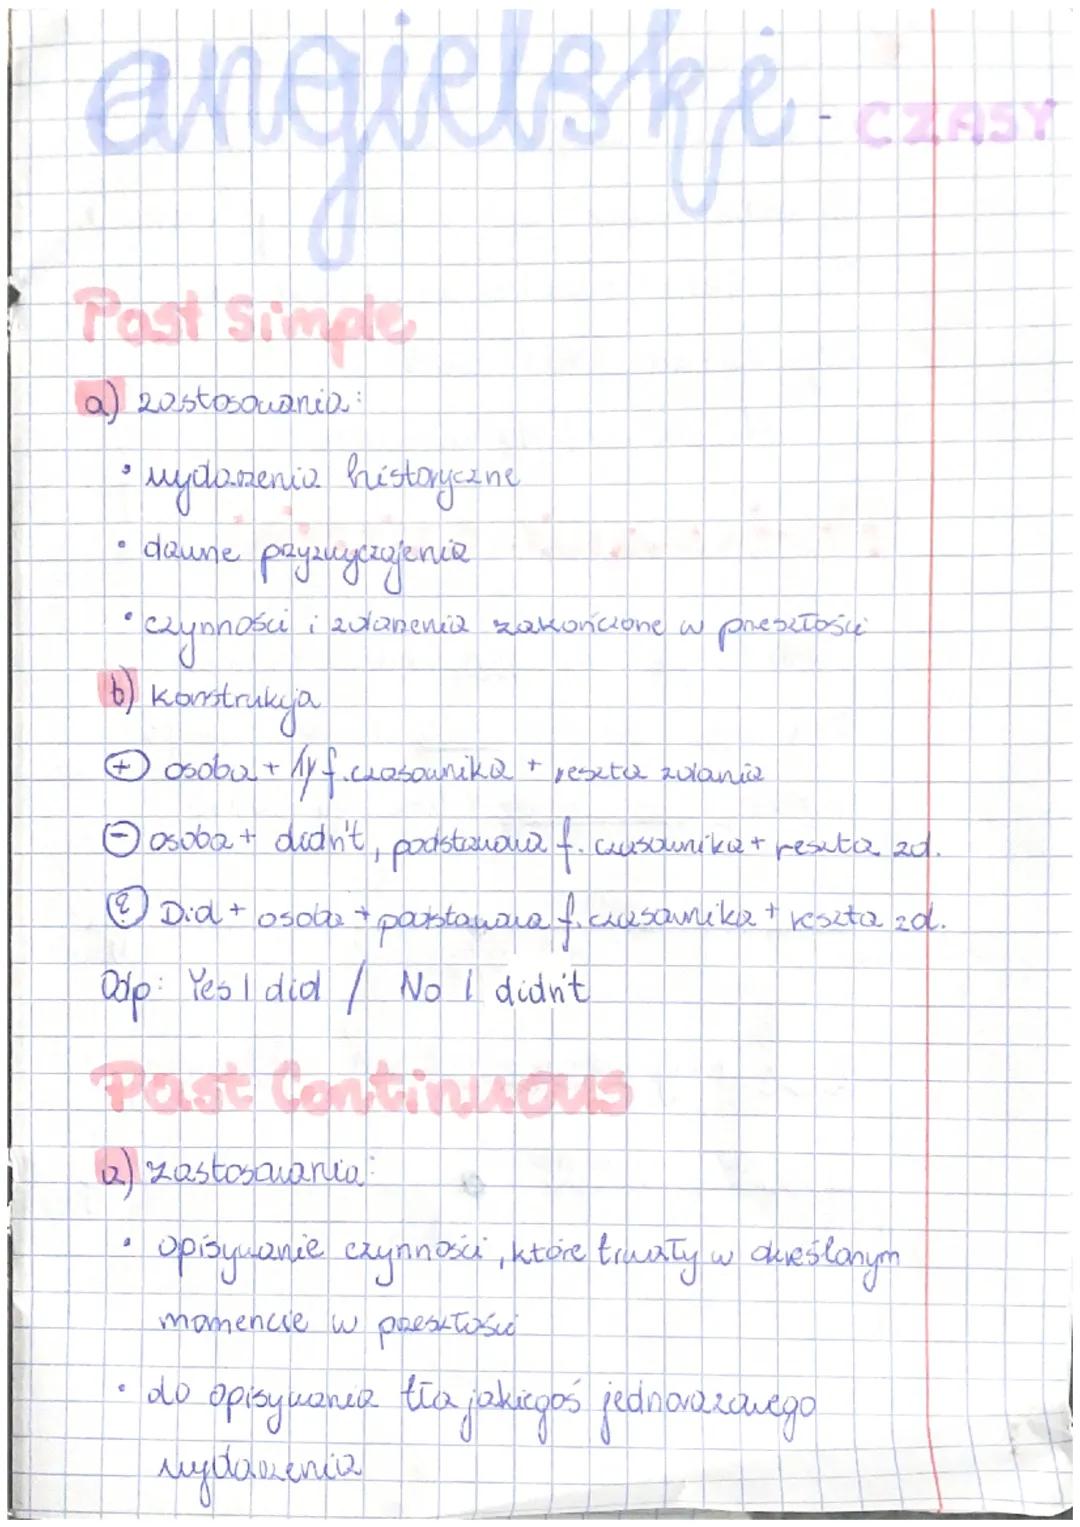 angielski - CZASY
Past Simple
a) zastosowania:
• wydarzenia historyczne
• dawne przyzwyczajenia
• czynności i zdarzenia zakończone w przeszłości
b) konstrukcja
+ osoba + f. czasownika + reszta zdania
- osoba + didn't, podstawowa f. czasownika + reszta zd.
? Did + osoba + podstawowa f. czasownika + reszta zd.
Odp: Yes I did / No I didn't
Past Continuous
a) zastosowania:
• opisywanie czynności, które trwały w określonym
momencie w przeszłości
• do opisywania tła jakiegoś jednorazowego
wydarzenia